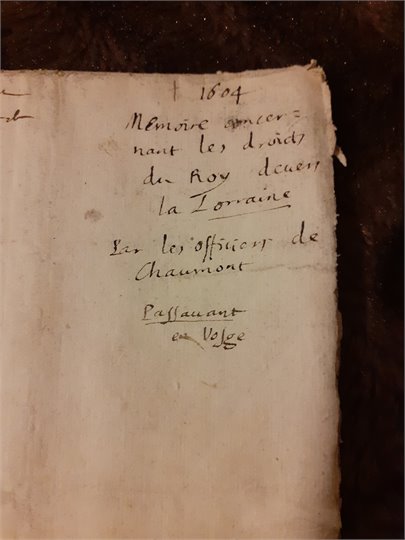 1604
Memoire concer=
nant les droicts
du Roy devers
la Lorraine
Par les officiers de
Chaumont
Passavant
en Vosge